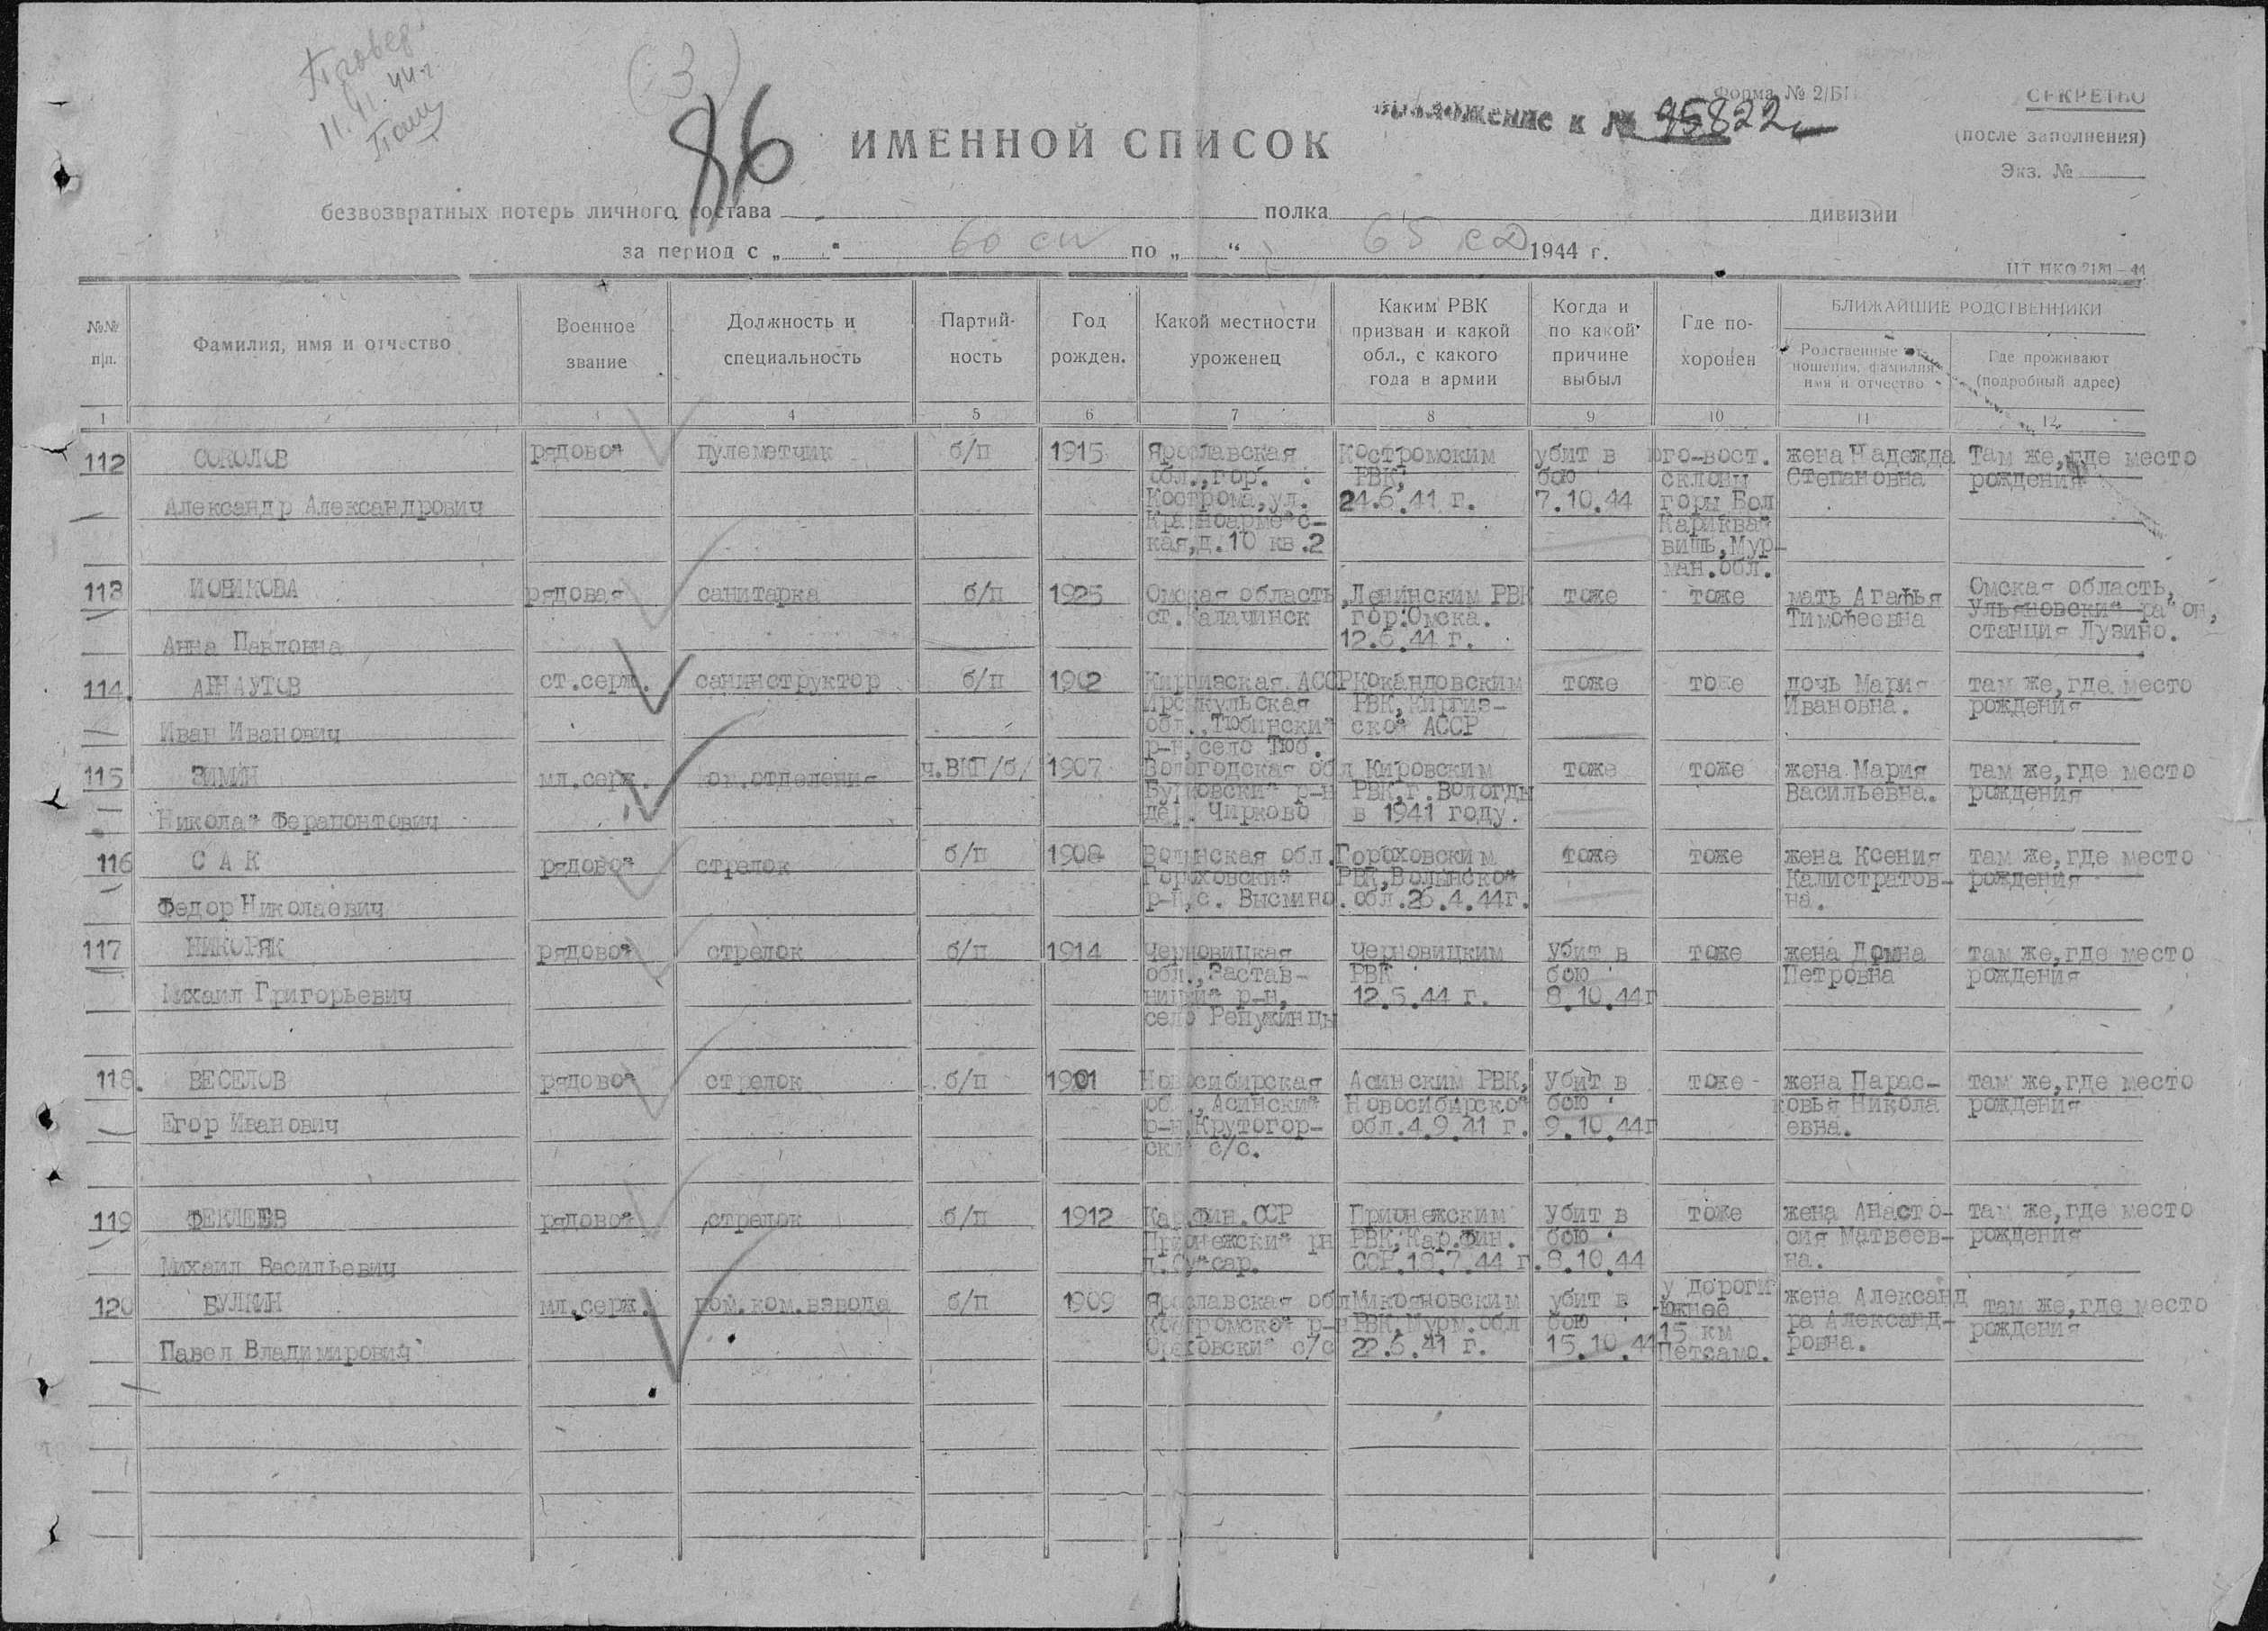 Провер.
11.11.44 г.
(3)
86
Форма № 2/БП
СЕКРЕТНО
Приложение к № 95822
(после заполнения)
ИМЕННОЙ СПИСОК
Экз. №
безвозвратных потерь личного состава полка дивизии
за период с „ “ 60 сп по „ “ 65 сд 1944 г.
№№ п/п.
Фамилия, имя и отчество
Военное звание
Должность и специальность
Партий-ность
Год рожден.
Какой местности уроженец
Каким РВК призван и какой обл., с какого года в армии
Когда и по какой причине выбыл
Где по-хоронен
БЛИЖАЙШИЕ РОДСТВЕННИКИ
Родственные от-ношения, фамилия имя и отчество
Где проживают (подробный адрес)
1 3 4 5 6 7 8 9 10 11 12
112 СОКОЛОВ рядовой пулеметчик б/п 1915 Ярославская Костромским убит в юго-вост. жена Надежда Там же, где место
обл.,гор. РВК, бою склоны Степановна рождения
Александр Александрович Кострома,ул. 24.6.41 г. 7.10.44 горы Бол
Красноармейс- Кариквай
кая,д.10 кв.2 вишь,Мур-
ман.обл.
113 НОВИКОВА рядовая санитарка б/п 1925 Омская область, Ленинским РВК тоже тоже мать Агафья Омская область,
ст.Калачинск гор.Омска. Тимофеевна Ульяновский район,
Анна Павловна 12.6.44 г. станция Лузино.
114. АРНАУТОВ ст.серж. санинструктор б/п 1902 Киргизская АССР Кокандовским тоже тоже дочь Мария там же,где место
Иссыкульская РВК,Киргиз- Ивановна. рождения
Иван Иванович обл.,Тюбинский ской АССР
р-н,село Тюб.
115 ЗИМИН мл.серж. ком.отделения ч.ВКП/б/ 1907 Вологодская обл Кировским тоже тоже жена Мария там же,где место
р-н РВК,г.Вологды Васильевна. рождения
Николай Ферапонтович дер. Чирково в 1941 году.
116 С А К рядовой стрелок б/п 1908 Волынская обл. Гороховским тоже тоже жена Ксения там же,где место
Гороховский РВК,Волынской Калистратов- рождения
Федор Николаевич р-н,с. обл.26.4.44г. на.
117 НИКОРЯК рядовой стрелок б/п 1914 Черновицкая Черновицким убит в тоже жена Домна там же,где место
обл.,Застав- РВК бою Петровна рождения
Михаил Григорьевич ницкий р-н, 12.5.44 г. 8.10.44г
село Репужинцы
118. ВЕСЕЛОВ рядовой стрелок б/п 1901 Новосибирская Асинским РВК, убит в тоже жена Парас- там же,где место
обл.,Асинский Новосибирской бою ковья Никола рождения
Егор Иванович р-н,Крутогор- обл.4.9.41 г. 9.10.44г евна.
ский с/с.
119 ФЕКЛЕЕВ рядовой стрелок б/п 1912 Кар.Фин.ССР Прионежским убит в тоже жена Анасто- там же,где место
Прионежский рн РВК,Кар.Фин. бою сия Матвеев- рождения
Михаил Васильевич д.Суйсар. ССР.18.7.44 г. 8.10.44 на.
120 БУЛКИН мл.серж. пом.ком.взвода б/п 1909 Ярославская обл Микояновским убит в у дороги жена Александ там же,где место
Костромской р-н РВК,Мурм.обл бою южнее ра Александ- рождения
Павел Владимирович с/с 22.6.41 г. 15.10.44 15 км ровна.
Петсамо.